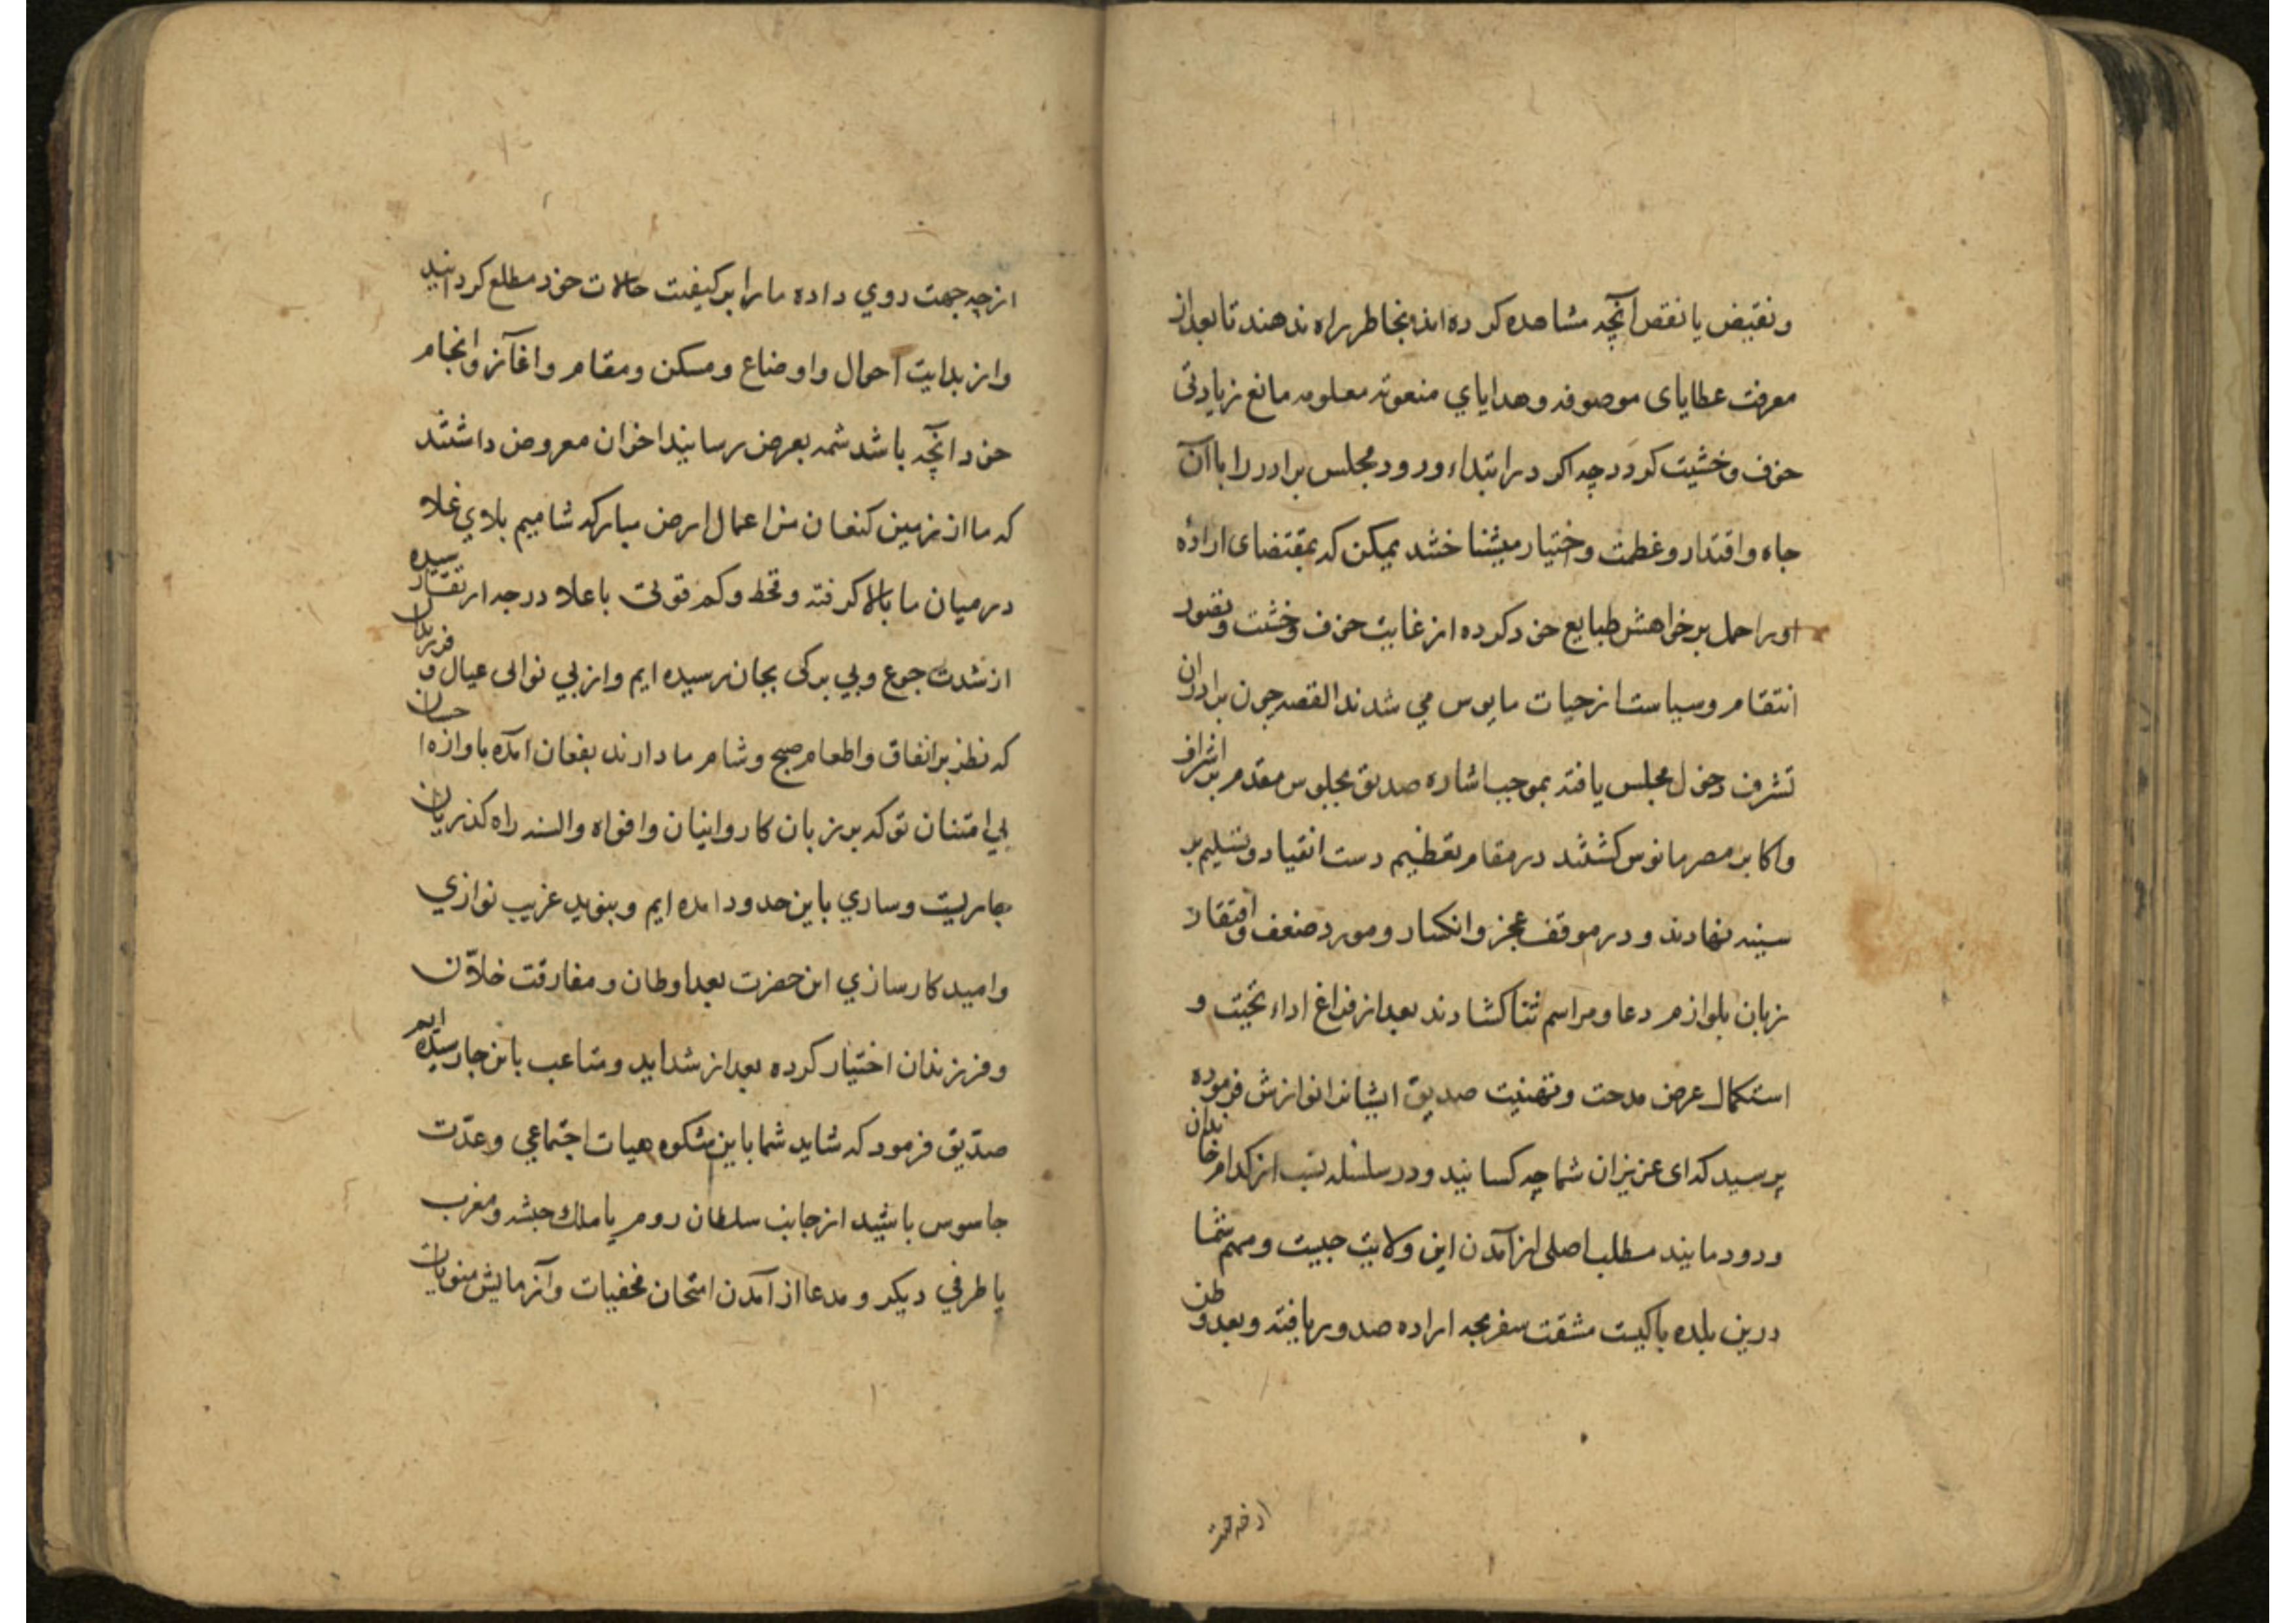 ونقیض یا نقص آنچه مشاهده کرده اند بخاطر راه ندهند تا بعد از
معرفت عطایای موصوفه وهدایاي منعوته معلومه مانع زیادتی
خوف وخشیت کردد چه اکر در ابتداء ورود مجلس برادر را با آن
جاه واقتدار وعظمت واختیار میشناختند یمکن که بمقتضای اراده
اورا حمل بر خواهش طبایع خود کرده از غایت خوف وخشیت وتصور
انتقام وسیاست از حیات مایوس مي شدند القصه چون برادران
تشرف دخول مجلس یافته بموجب اشاره صدیق بجلوس مقدم بر اشراف
واکابر مصر مانوس کشتند در مقام تعظیم دست انقیاد وتسلیم بر
سینه نهادند و در موقف عجز وانکسار ومورد ضعف وافتقار
زبان بلوازم دعا ومراسم ثنا کشادند بعد از فراغ اداء تحیّت و
استکمال عرض مدحت وتهنیت صدیق ایشانرا نوازش فرموده
پرسید که ای عزیزان شما چه کسانید ودر سلسله نسب از کدام خاندان
ودودمانید مطلب اصلی از آمدن این ولایت چیست ومهم شما
درین بلده با کیست مشقت سفر بچه اراده صدور یافته وبعد وطن
از چه جهت
از چه جهت روي داده مارا بر کیفیت حالات خود مطلع کردانید
واز بدایت احوال واوضاع ومسکن ومقام واغاز وانجام
خود آنچه باشد شمه بعرض رسانید اخوان معروض داشتند
که ما از زمین کنعان من اعمال ارض مبارکه شامیم بلاي غلا
در میان ما بالا کرفته وقحط وکم قوتی باعلا درجه ارتقا رسیده
از شدت جوع وبي برکی بجان رسیده ایم واز بي نوائی عیال و فرزندان
که نظر بر انفاق واطعام صبح وشام ما دارند بفغان امده باوازه احسان
بي امتنان تو که بر زبان کاروانیان وافواه والسنه راه کذریان
جاریست وساري باین حدود امده ایم وبنوید غریب نوازي
وامید کارسازي این حضرت بعد اوطان ومفارقت خلاّن
وفرزندان اختیار کرده بعد از شداید ومتاعب باین جا رسیده ایم
صدّیق فرمود که شاید شما باین شکوه هیات اجتماعي وعدّت
جاسوس باشید از جانب سلطان روم یا ملك حبشه ومغرب
یا طرفي دیکر ومدعا از آمدن امتحان مخفیات وآزمایش منویات